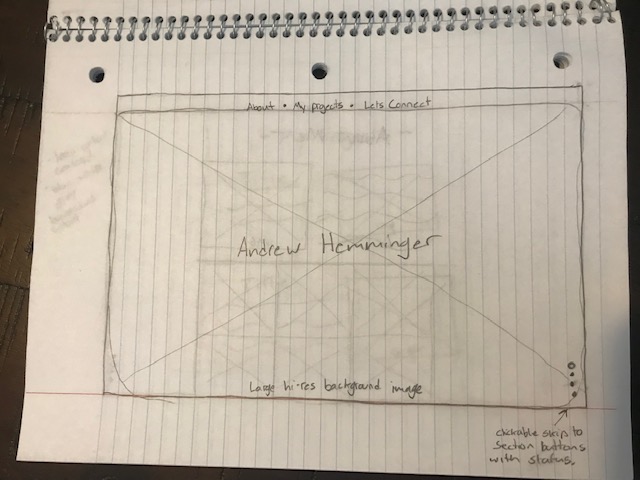 About • My projects • Lets Connect
Andrew Hemminger
Large hi-res background image
clickable skip to
section buttons
with status.